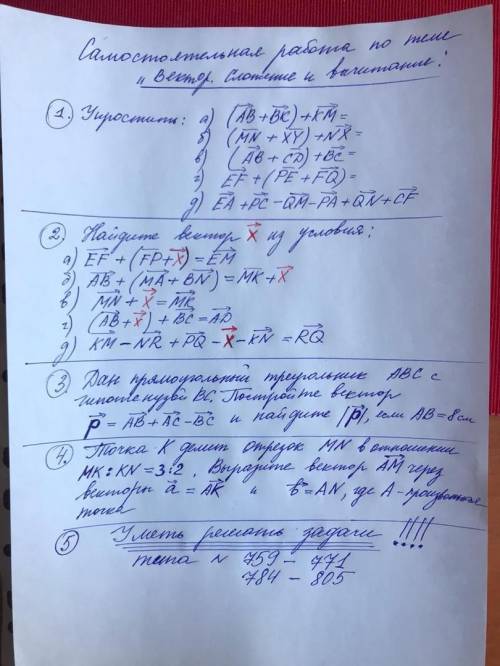 Самостоятельная работа по теме
"Вектор. Сложение и вычитание".
1. Упростить: а) (AB + BK) + KM =
б) (MN + XY) + NX =
в) (AB + CD) + BC =
г) EF + (PE + FQ) =
д) EA + PC - QM - PA + QN + CF
2. Найдите вектор x из условия:
а) EF + (FP + x) = EM
б) AB + (MA + BN) = MK + x
в) MN + x = MK
г) (AB + x) + BC = AD
д) KM - NR + PQ - x - KN = RQ
3. Дан прямоугольный треугольник ABC с
гипотенузой BC. Постройте вектор
p = AB + AC - BC и найдите |p|, если AB = 8 см
4. Точка K делит отрезок MN в отношении
MK : KN = 3:2. Выразите вектор AM через
векторы a = AK и b = AN, где A - произвольная
точка
5 Уметь решать задачи !!!!
типа № 759 - 771
784 - 805